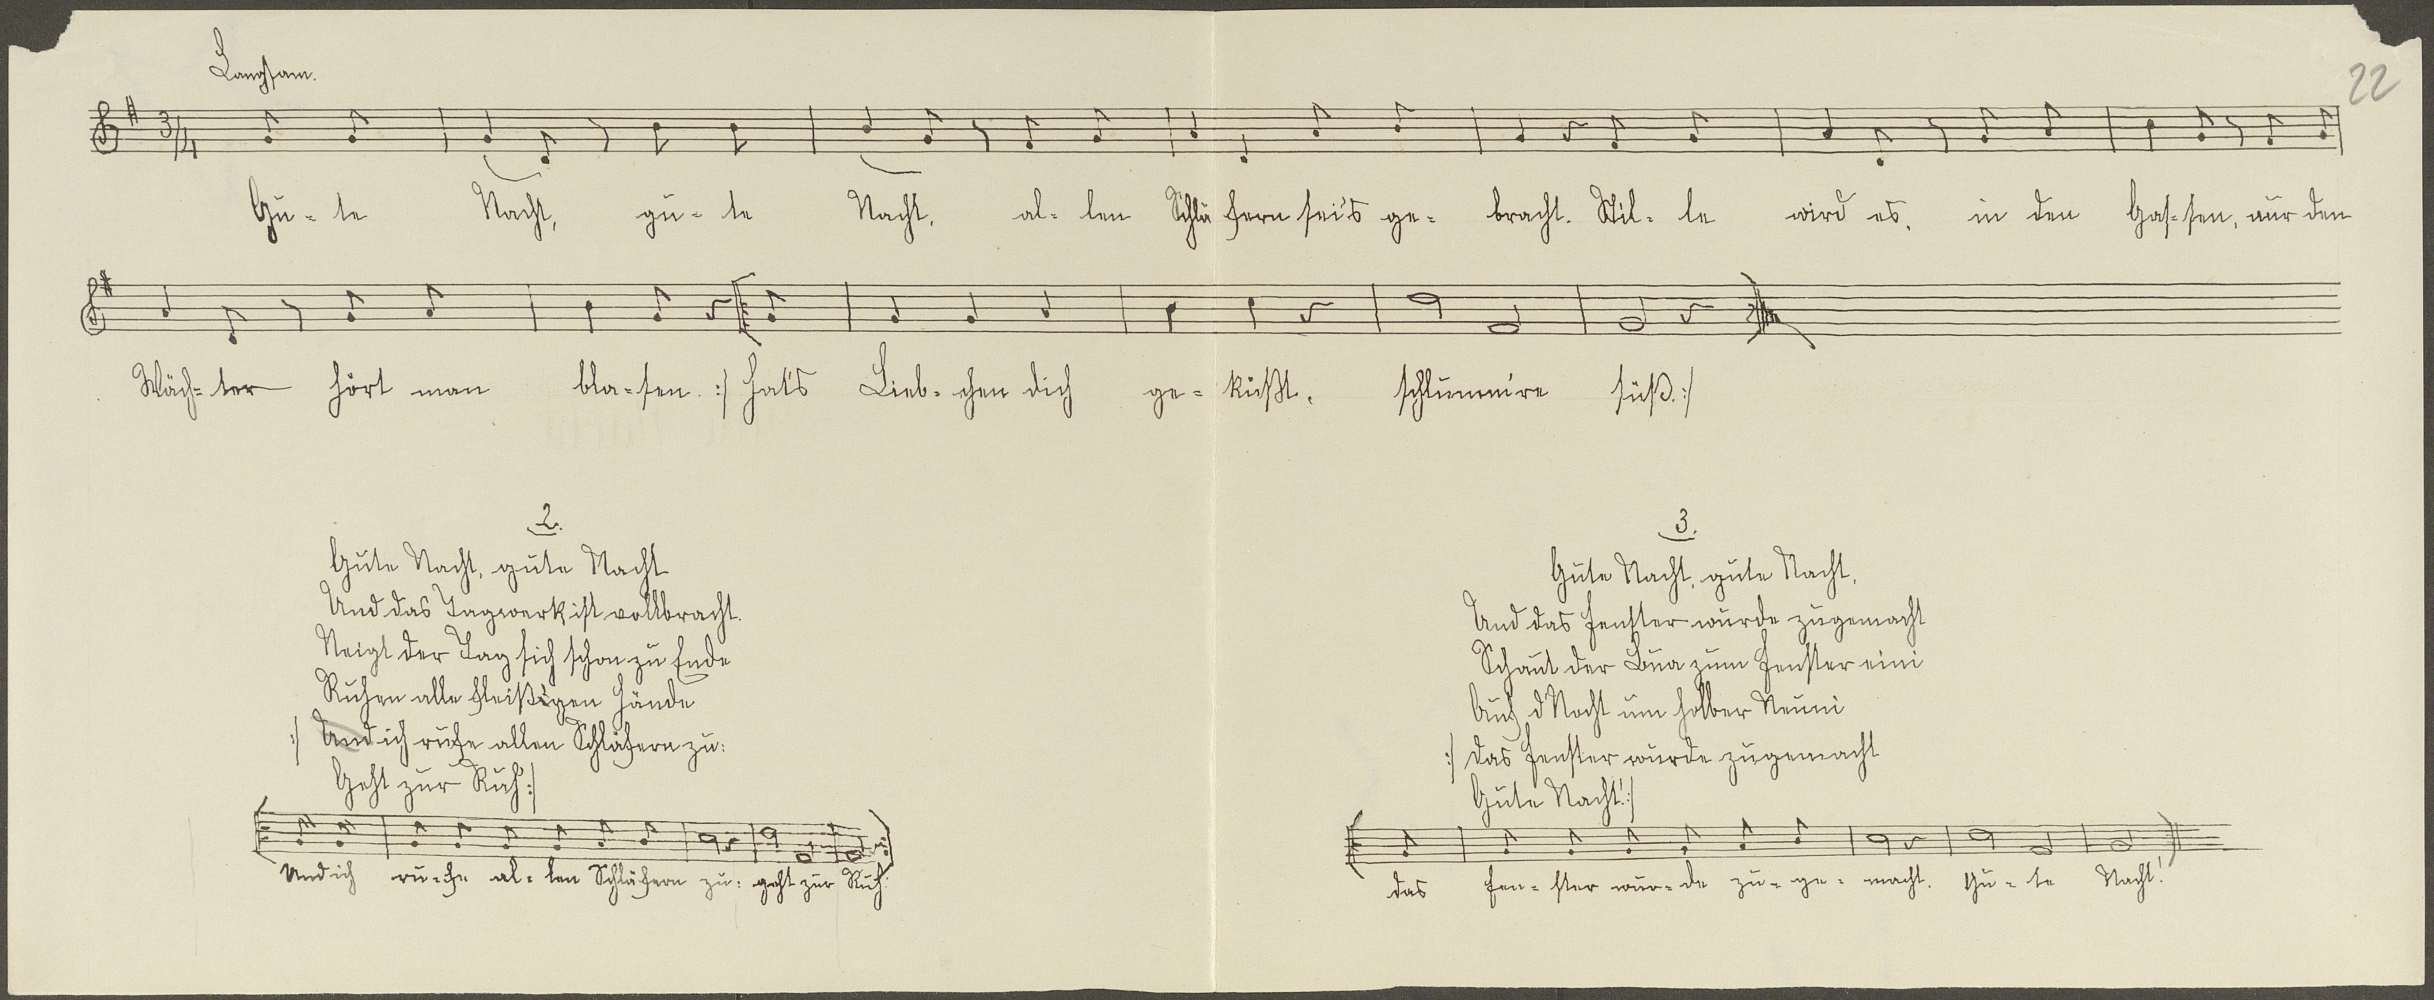 Langsam.
22
3/4
Gu- te Nacht, gu- te Nacht, al- len Schlä fern sei's ge- bracht. Stil- le wird es, in den Gas- sen, nur den
Wäch- ter hört man bla- sen. :/ Hat's Lieb- chen dich ge- küßt, schlumm're süß. :/
2.
Gute Nacht, gute Nacht
Und das Tagwerk ist vollbracht.
Neigt der Tag sich schon zu Ende
Ruhen alle fleißigen Hände
:/ Und ich rufe allen Schläfern zu:
Geht zur Ruh' :/
Und ich ru- fe al- len Schläfern zu: geht zur Ruh'
3.
Gute Nacht, gute Nacht,
Und das Fenster wurde zugemacht
Schaut der Bua zum Fenster eini
Auf d Nocht um holber Neuni
:/ Das Fenster wurde zugemacht
Gute Nacht! :/
das Fen- ster wur- de zu- ge- macht. Gu- te Nacht!